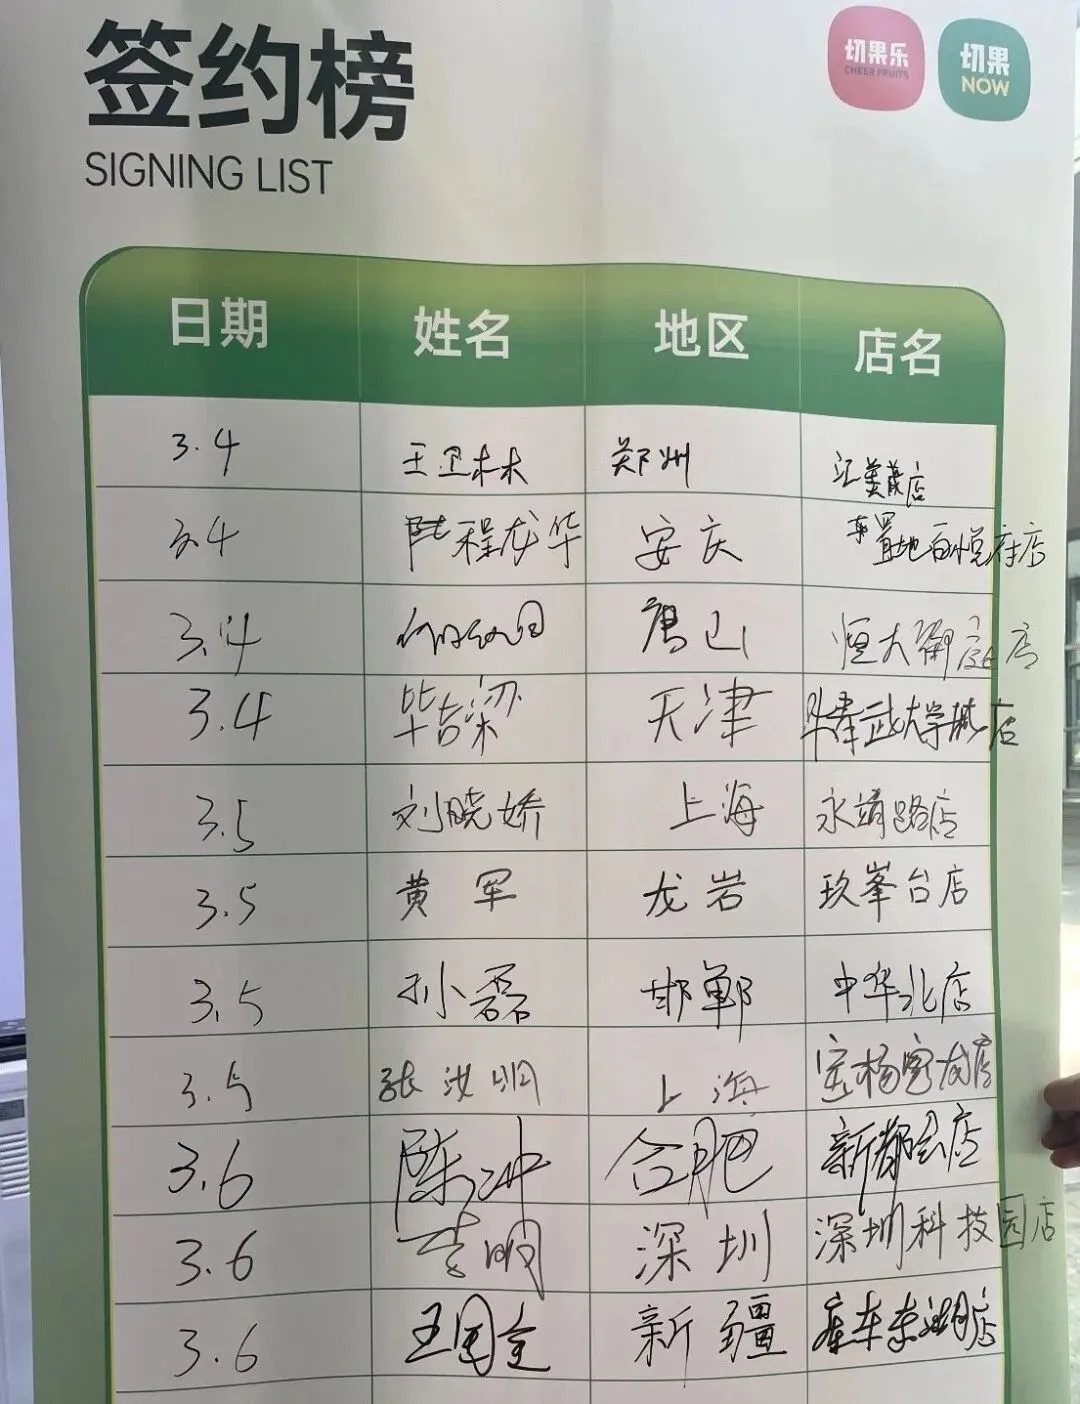 签约榜
SIGNING LIST
切果乐
CHEER FRUITS
切果
NOW
日期 姓名 地区 店名
3.4 王卫林 郑州 店
3.4 程龙华 安庆 置地百悦府店
3.4 唐山 恒大御庭店
3.4 毕吉梁 天津 武大学城店
3.5 刘晓娇 上海 永靖路店
3.5 黄军 龙岩 玖峯台店
3.5 孙磊 邯郸 中华北店
3.5 张汝明 上海 宝杨宝龙店
3.6 陈冲 合肥 新都会店
3.6 李明 深圳 深圳科技园店
3.6 王国全 新疆 库车东湖店